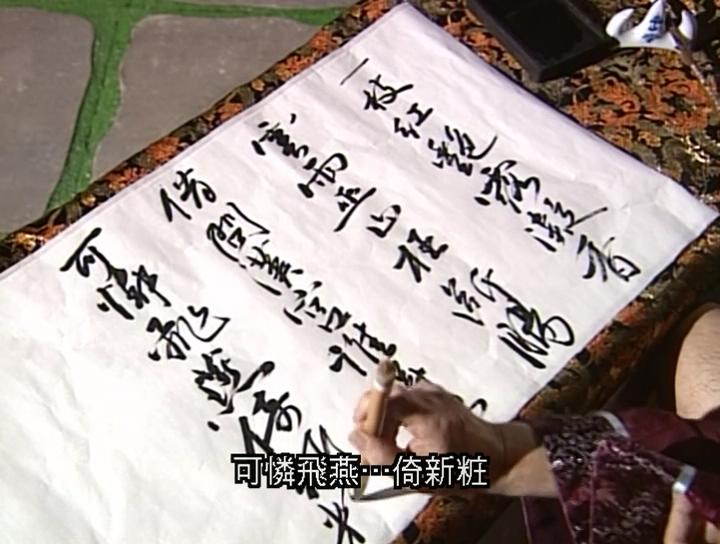 一枝紅艷露凝香
雲雨巫山枉斷腸
借問漢宮誰
可憐飛燕倚新
可憐飛燕…倚新粧